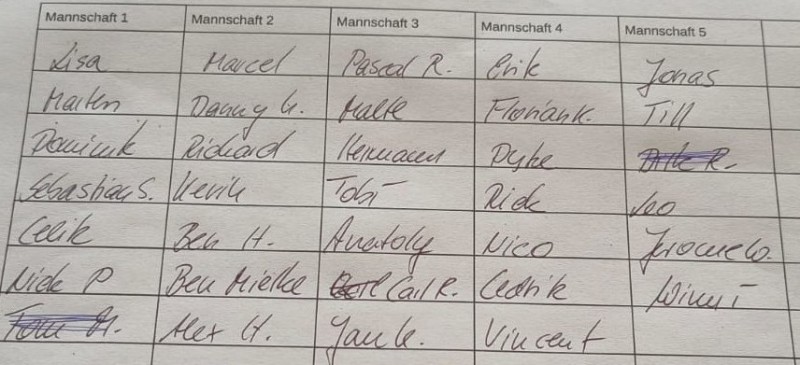 Mannschaft 1 Mannschaft 2 Mannschaft 3 Mannschaft 4 Mannschaft 5
Lisa Marcel Pascal R. Erik Jonas
Marten Danny G. Malte Florian K. Till
Dominik Richard Hermann Dirk R.
Sebastian S. Kevin Tobi Rick Leo
Celik Ben H. Anatoly Nico Jerome W.
Nick P Ben Mielke Carl R. Cedrik Winni
Tom M. Alex H. Jan G. Vincent